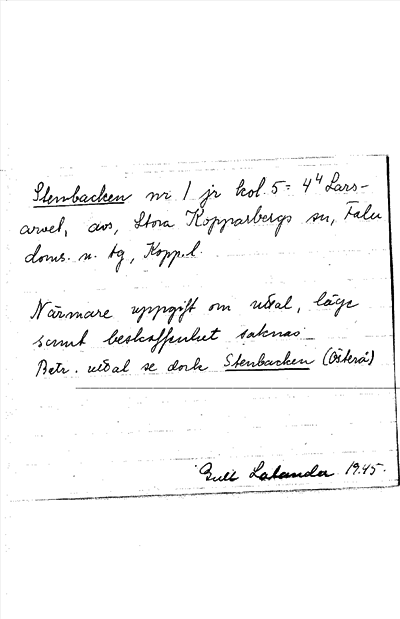 Stenbacken nr 1 jr kol. 5 = 4⁴ Lars-
arvet, avs, Stora Kopparbergs sn, Falu
doms. n. tg, Kopp.l.
Närmare uppgift om uttal, läge
samt beskaffenhet saknas
Betr. uttal se dock Stenbacken (Österå)
Lalander 1945.